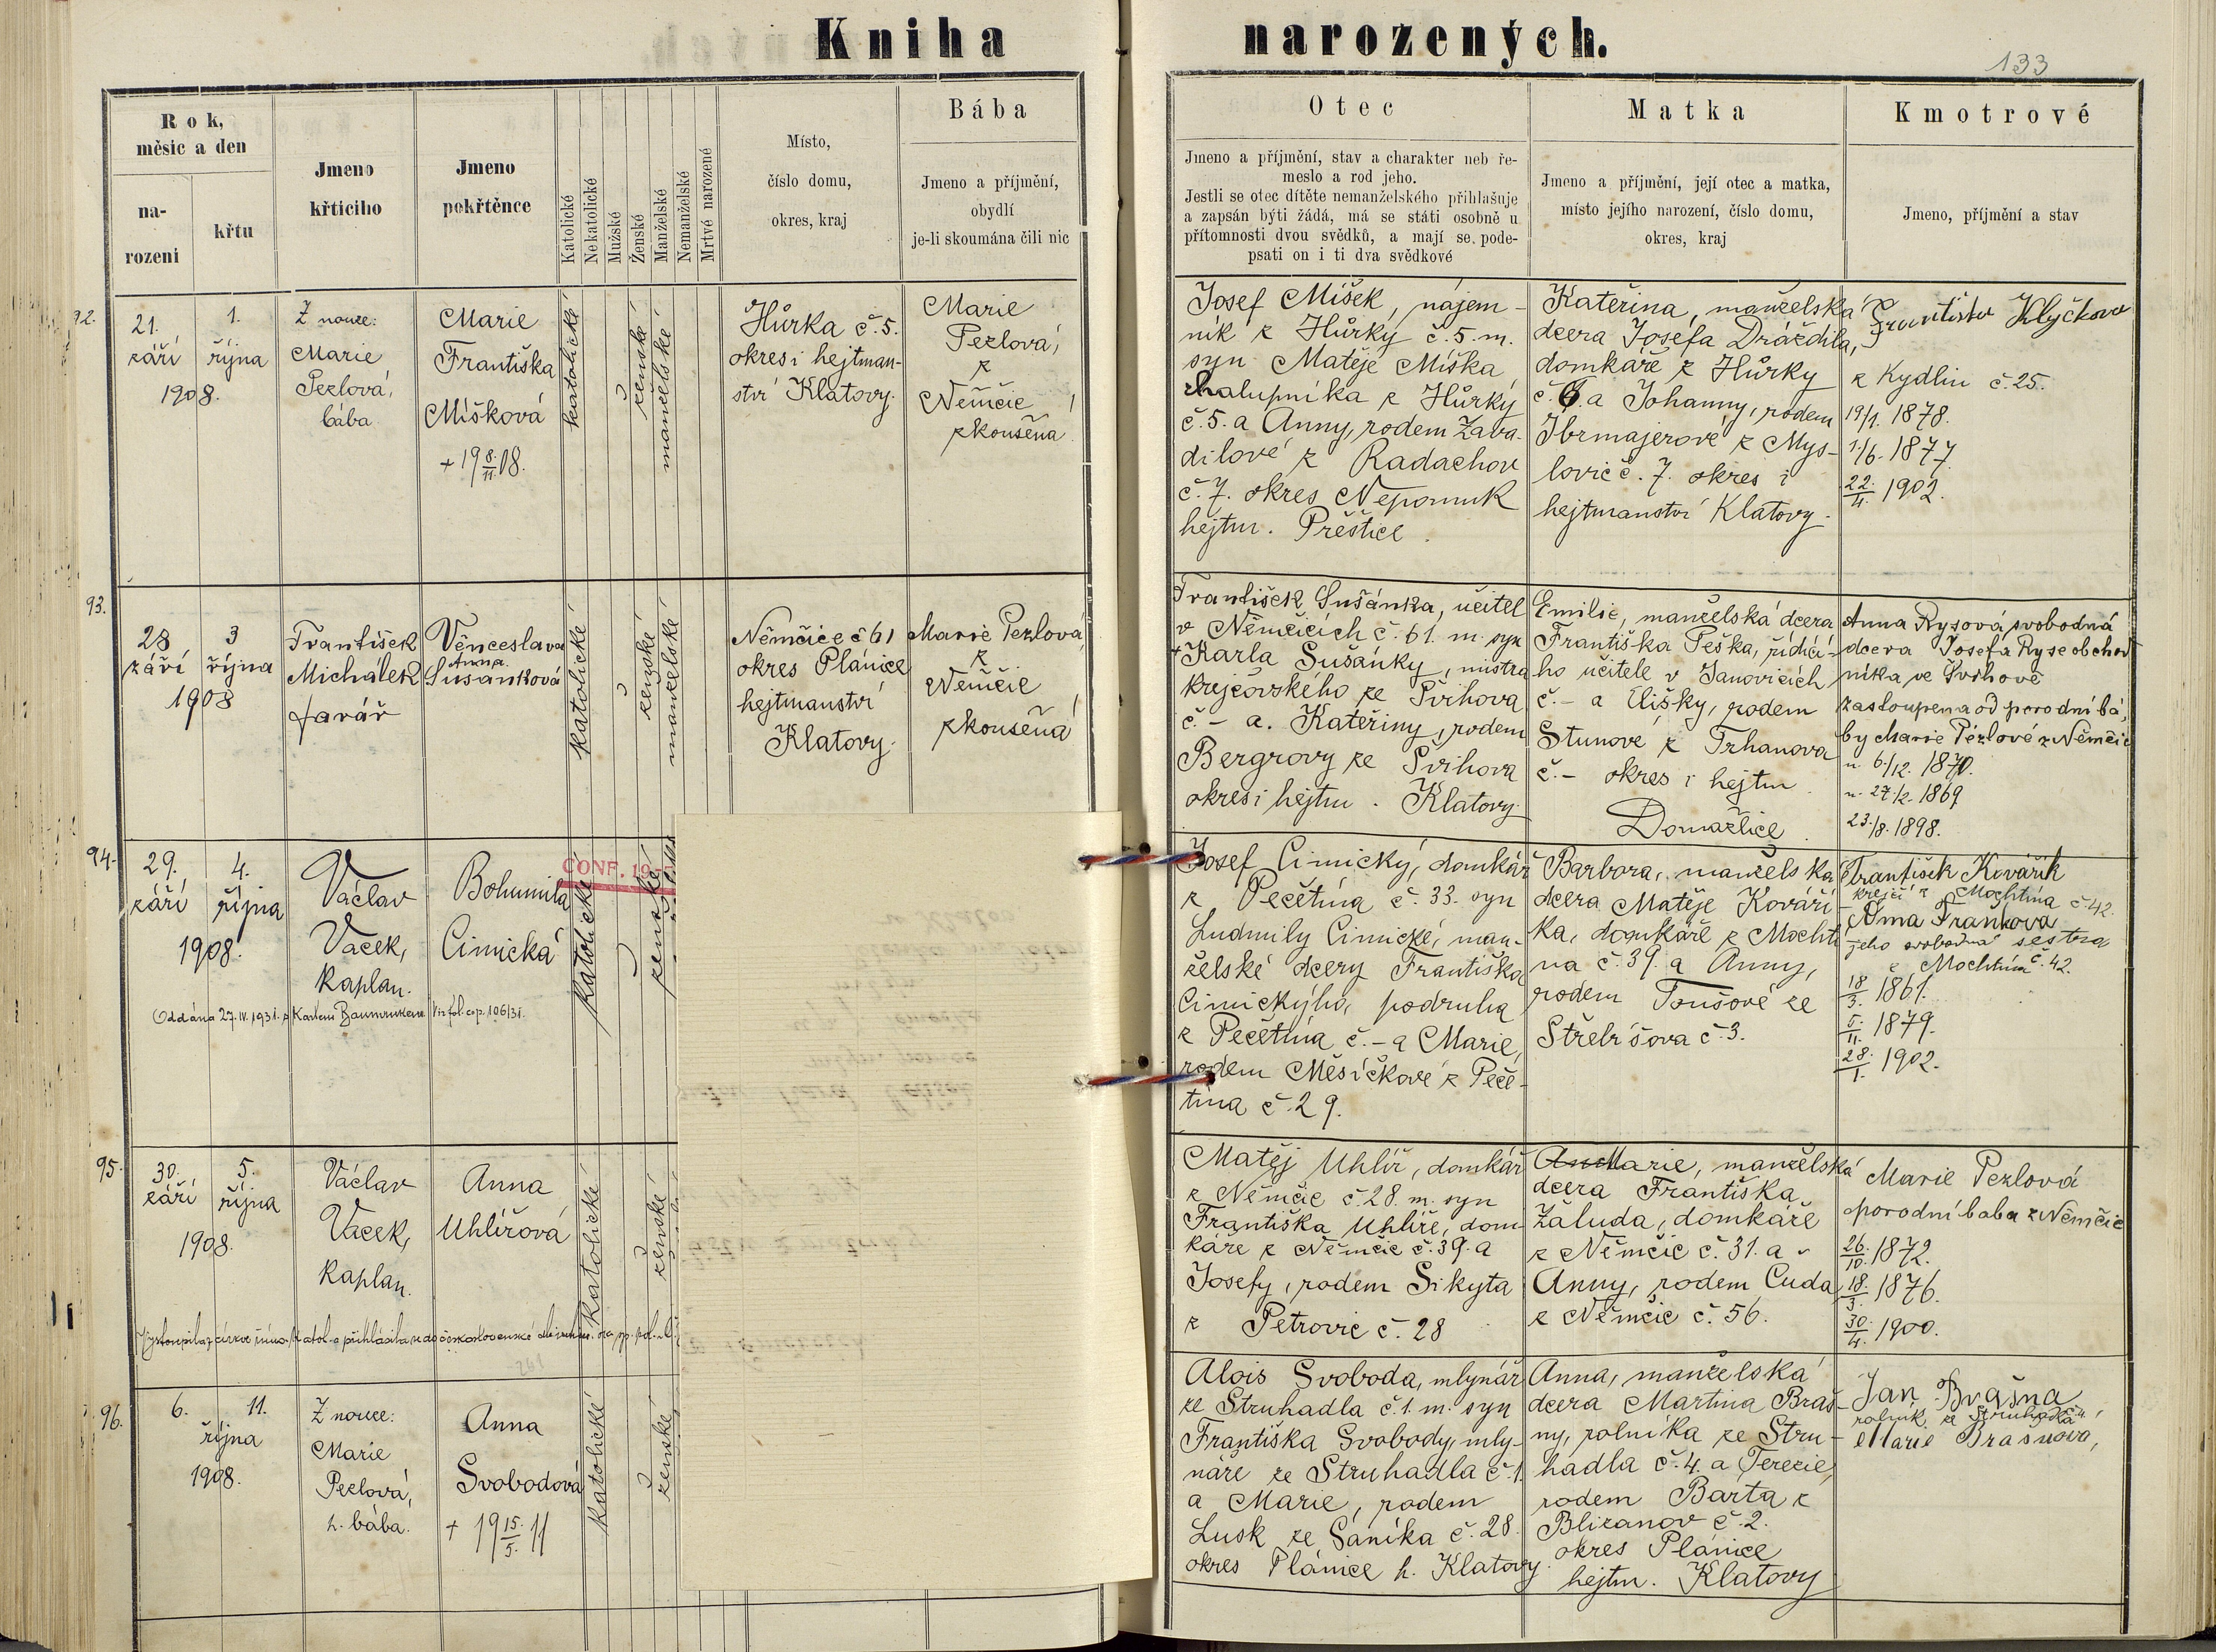 Kniha narozených.
133
Rok, měsic a den
na-
rozeni
křtu
Jmeno
křticiho
Jmeno
pokřtěnce
Katolické
Nekatolické
Mužské
Ženské
Manželské
Nemanželské
Mrtvé narozené
Místo,
číslo domu,
okres, kraj
Bába
Jmeno a příjmění,
obydlí
je-li skoumána čili nic
Otec
Jmeno a příjmění, stav a charakter neb ře-
meslo a rod jeho.
Jestli se otec dítěte nemanželského přihlašuje
a zapsán býti žádá, má se státi osobně u
přítomnosti dvou svědků, a mají se pode-
psati on i ti dva svědkové
Matka
Jmeno a příjmění, její otec a matka,
místo jejího narození, číslo domu,
okres, kraj
Kmotrové
Jmeno, příjmění a stav
92.
21.
září
1.
října
1908.
Z nouze:
Marie
Pezlová,
bába
Marie
Františka
Míšková
+ 19 8./11. 08.
katolické
ženské
manželské
Hůrka č. 5.
okres i hejtman-
ství Klatovy.
Marie
Pezlová,
z
Němčic
zkoušená
Josef Míšek, nájem-
ník z Hůrky č. 5. m.
syn Matěje Míška
chalupníka z Hůrky
č. 5. a Anny, rodem Zava-
dilové z Radachov
č. 7. okres Nepomuk
hejtm. Přeštice.
Kateřina, manželská
dcera Josefa Dráždila,
domkáře z Hůrky
č. 6. a Johanny, rodem
Ibrmajerové z Mys-
lovic č. 7. okres i
hejtmanství Klatovy.
Klyčkova
z Kydlin č. 25.
19/1. 1878.
1./6. 1877.
22./4. 1902.
93.
28
září
3
října
1908
František
Michálek
farář
Věnceslava
Anna
Sušánková
katolické
ženské
manželské
Němčice č 61
okres Plánice
hejtmanství
Klatovy.
Marie Pezlová,
z
Němčic
zkoušená
František Sušánka, učitel
v Němčicích č. 61. m. syn
+ Karla Sušánky, mistra
krejčovského ze Švihova
č. - a. Kateřiny, rodem
Bergrovy ze Švihova
okres i hejtm. Klatovy.
Emilie, manželská dcera
Františka Peška, řídící-
ho učitele v Janovicích
č. - a Elišky, rodem
Stunové z Trhanova
č. - okres i hejtm.
Domažlice.
Anna Rysová svobodná
dcera Josefa Ryse obchod
níka ve Švihově
zastoupena od porodní bá-
by Marie Pezlové z Němčic
n. 6./12. 1870.
n. 27./2. 1869
23./8. 1898.
94.
29.
září
4.
října
1908.
Václav
Vacek,
kaplan.
Bohumila
Cimická
CONF. 19
katolické
ženské
Oddána 27. IV. 1931. s Karlem Viz fol. cop. 106/31.
Josef Cimický, domkář
z Pečetína č. 33. syn
Ludmily Cimické, man-
želské dcery Františka
Cimického, podruha
z Pečetína č. - a Marie,
rodem Měsíčkové z Peče-
tína č. 29.
Barbora, manželská
dcera Matěje Kováří-
ka, domkáře z Mochtí-
na č. 39. a Anny,
rodem Toušové ze
Střebišova č. 3.
František Kovářík
krejčí z Mochtína č. 42.
Anna
jeho svobodná sestra
z Mochtína č. 42.
18/3. 1861.
5./11. 1879.
28./1. 1902.
95.
30.
září
5.
října
1908.
Václav
Vacek,
kaplan.
Anna
Uhlířová
katolické
ženské
Vystoupila z církve řím. katol. a přihlásila se do československé
Matěj Uhlíř, domkář
z Němčic č 28. m. syn
Františka Uhlíře, dom-
káře z Němčic č. 39. a
Josefy, rodem Sikyta
z Petrovic č. 28
Marie, manželská
dcera Františka
Žaluda, domkáře
z Němčic č. 31. a
Anny, rodem Cuda
z Němčic č. 56.
Marie Pezlová
porodní baba z Němčic
26./10. 1872.
18./3. 1876.
30./4. 1900.
96.
6.
11.
října
1908.
Z nouze:
Marie
Pezlová,
h. bába.
Anna
Svobodová
+ 19 15./5. 11
katolické
ženské
Alois Svoboda, mlynář
ze Struhadla č. 1. m. syn
Františka Svobody, mly-
náře ze Struhadla č. 1.
a Marie, rodem
Lusk ze Saníka č. 28.
okres Plánice h. Klatovy.
Anna, manželská
dcera Martina Braš-
ny, rolníka ze Stru-
hadla č. 4. a Terezie,
rodem Barta z
Blizanov č. 2.
okres Plánice
hejtm. Klatovy
Jan Brašna
rolník ze Struhadla č. 4,
Marie Brašnová,